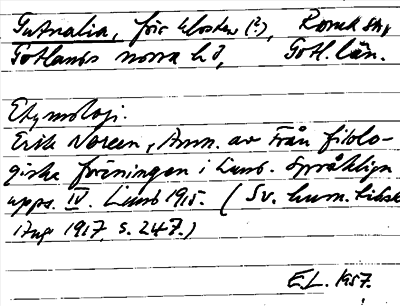 Gutnalia, förr kloster (?), Roma sn,
Gotlands norra hd, Gotl. län.
Etymologi.
Erik Noreen, Anm. av Från filolo-
giska föreningen i Lund. Språkliga
upps. IV. Lund 1915. (Sv. hum. tidskr.
Aug 1917, s. 247.)
E.L. 1957.